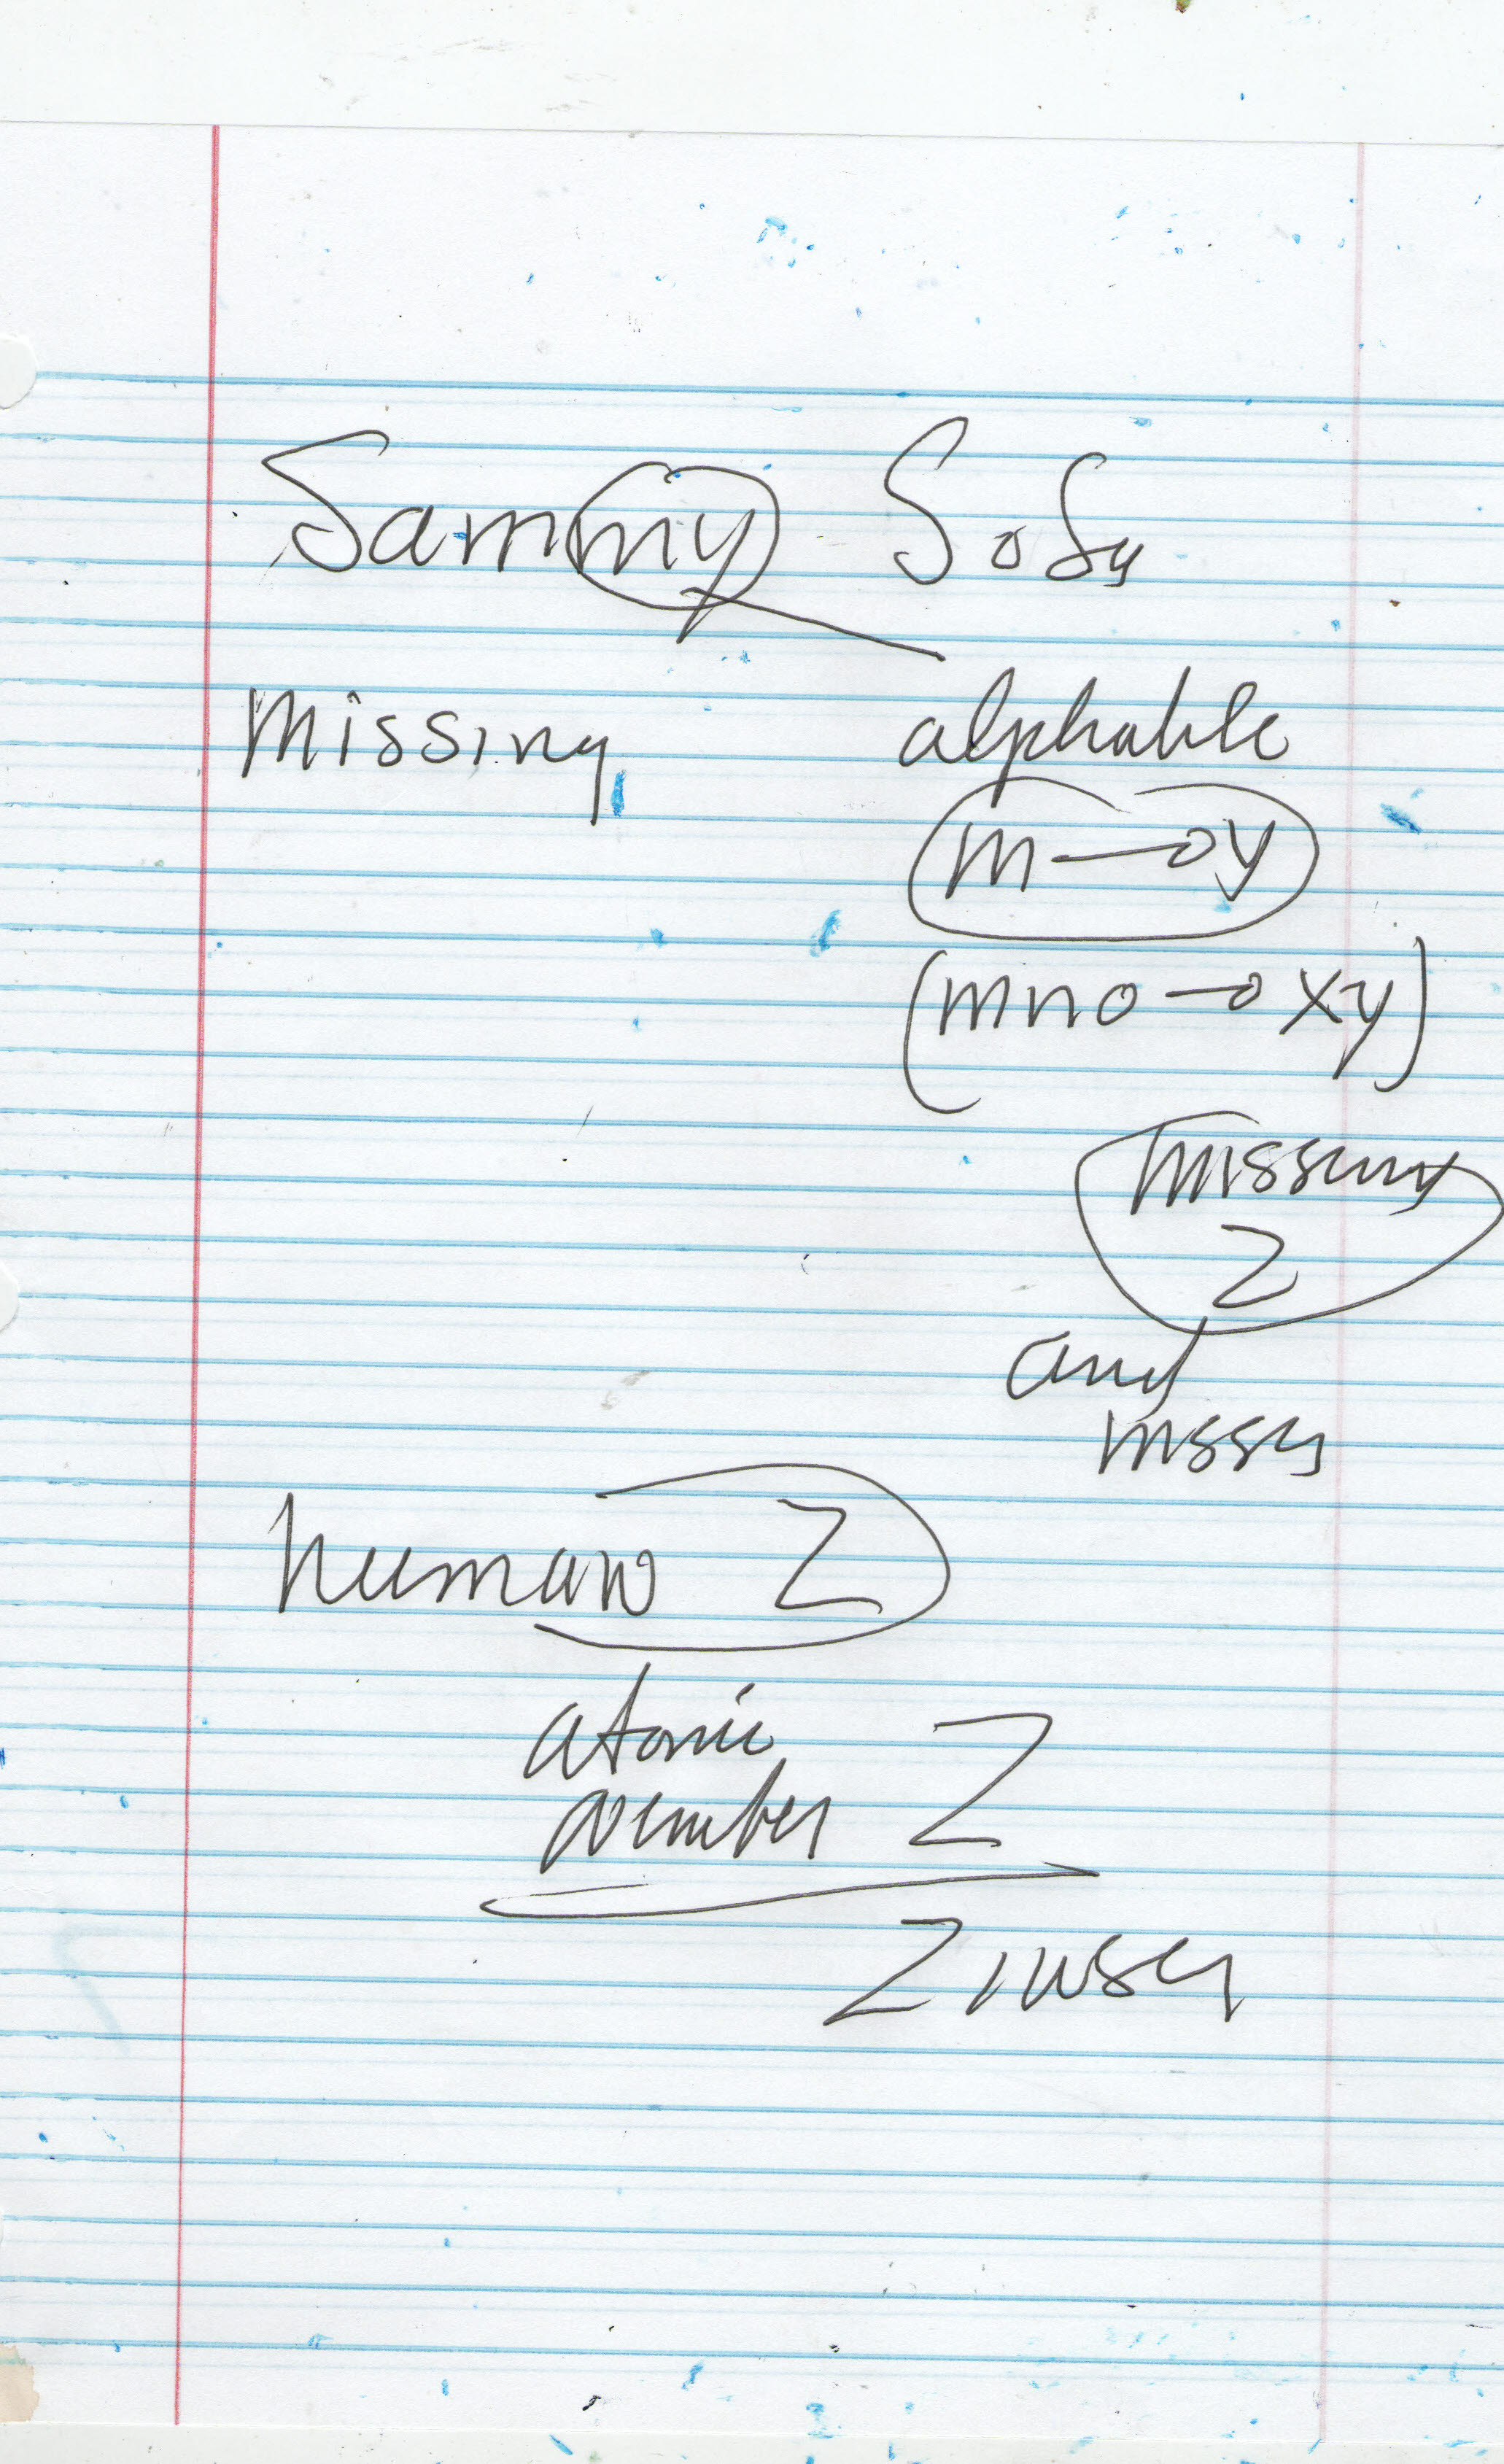 Sammy Sosa
Missing alphable
m→y
(mno→xy)
missing
Z
and
human Z
atomic
number Z